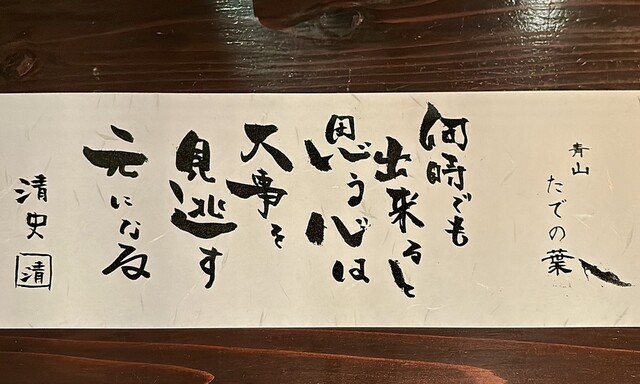 青山
たでの葉
何時でも
出来ると
思う心は
大事を
見逃す
元になる
清史
清